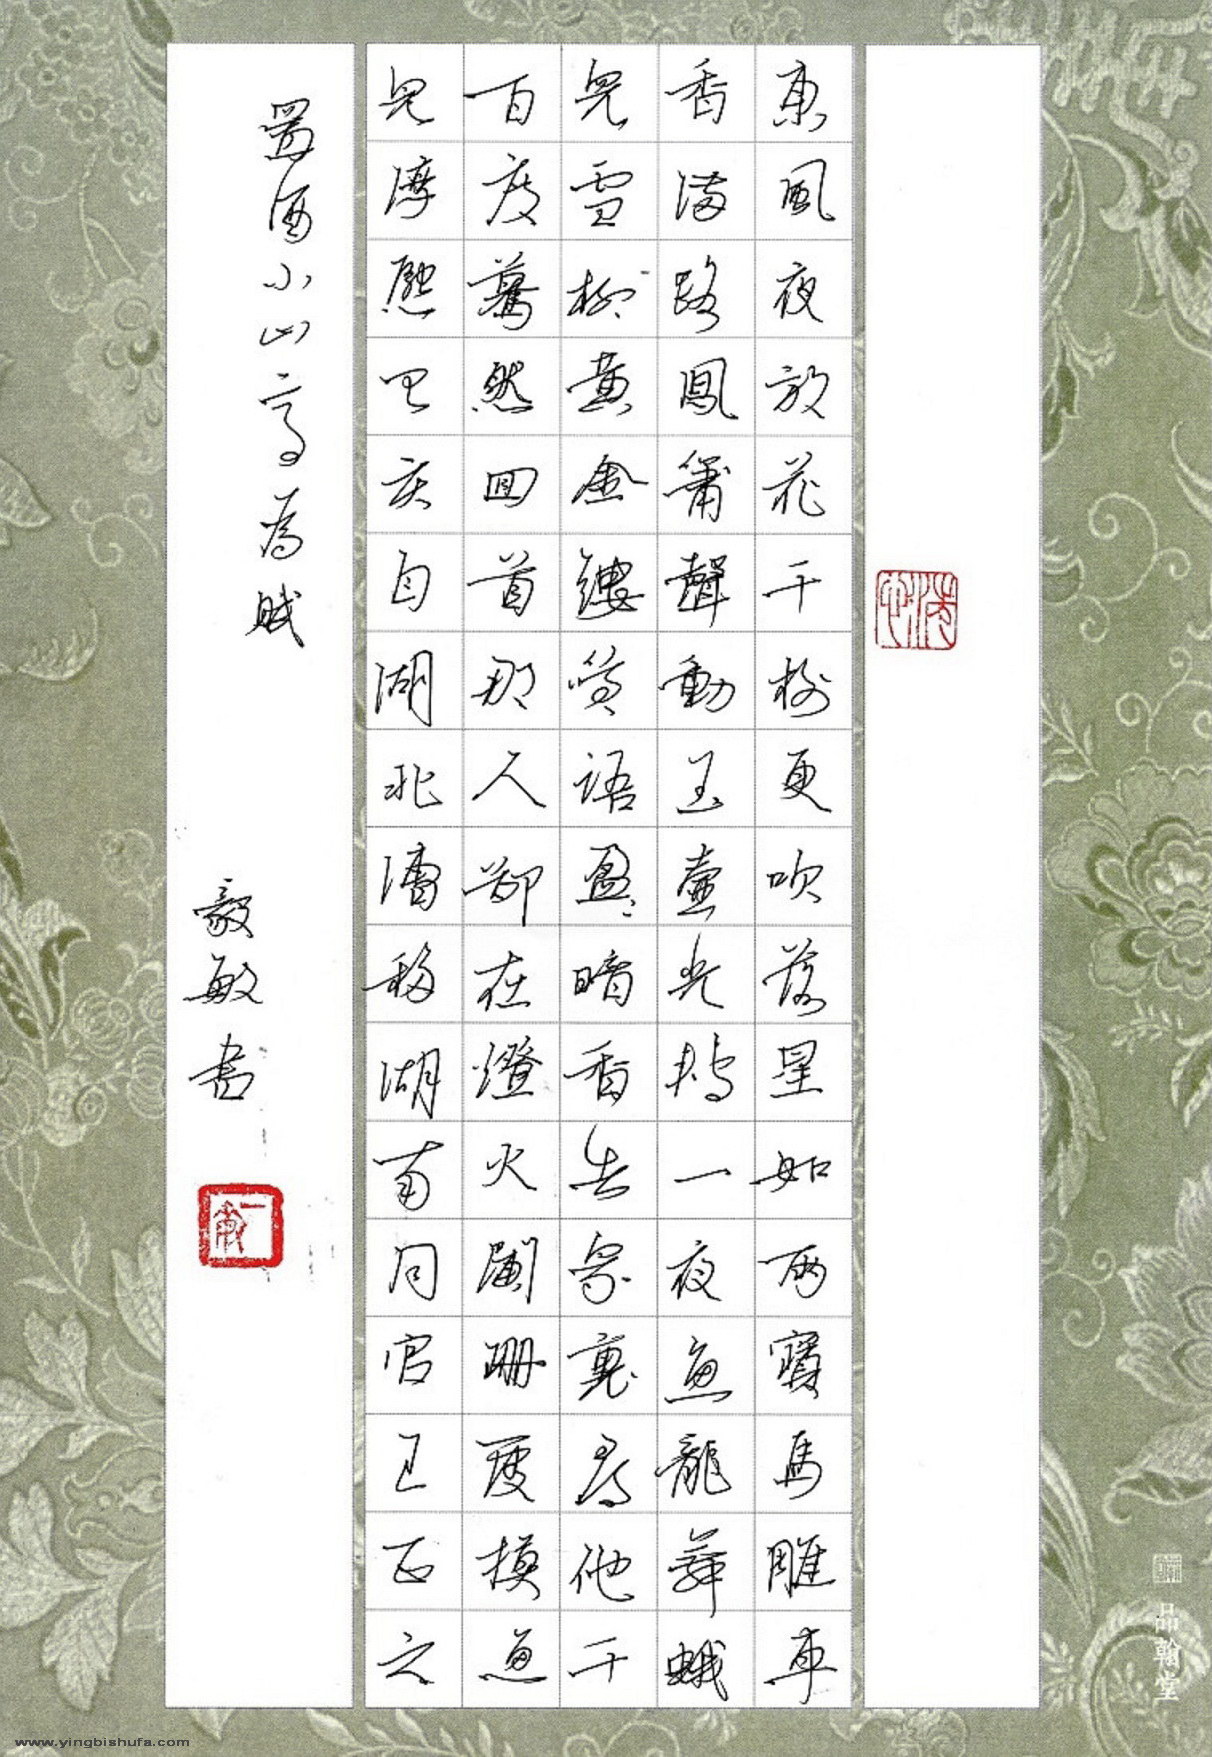 東風夜放花千樹更吹落星如雨寶馬雕車
香滿路鳳簫聲動玉壺光轉一夜魚龍舞蛾
兒雪柳黃金縷笑語盈盈暗香去眾裏尋他千
百度驀然回首那人卻在燈火闌珊處摸魚
兒淳熙己亥自湖北漕移湖南同官王正之
置酒小山亭為賦
毅敏書
品翰堂
www.yingbishufa.com